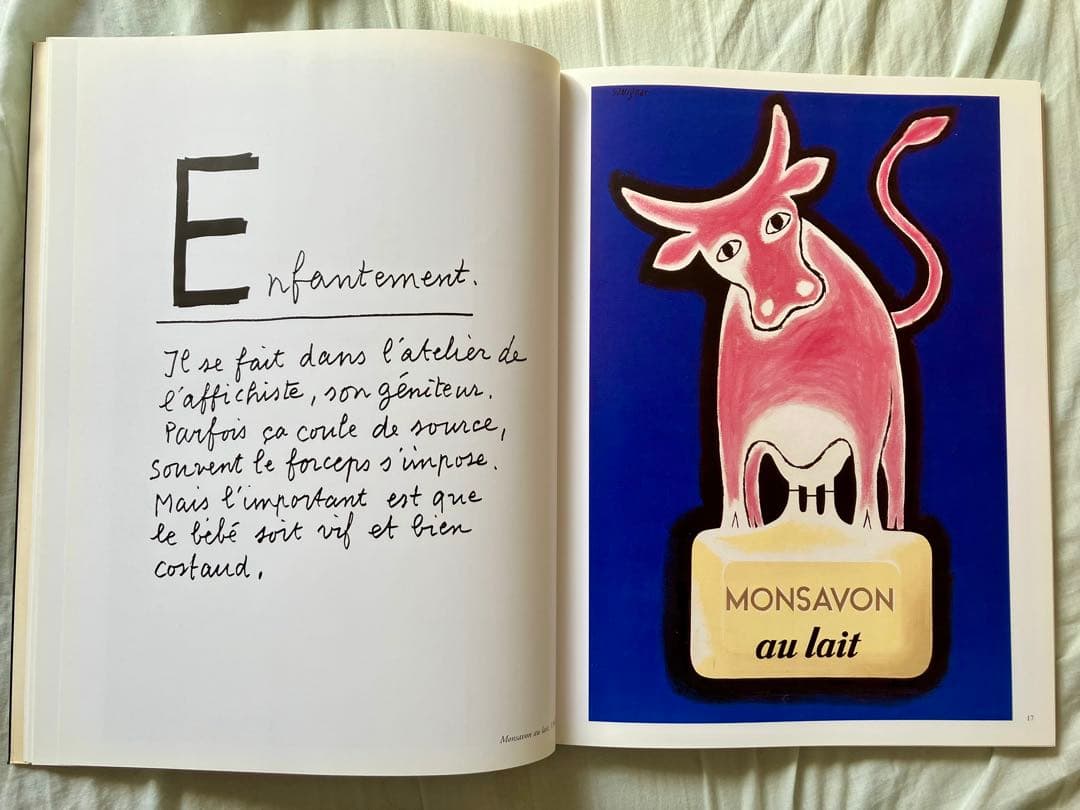 Enfantement.
Il se fait dans l'atelier de
l'affichiste, son géniteur.
Parfois ça coule de source,
souvent le forceps s'impose.
Mais l'important est que
le bébé soit vif et bien
costaud.
Monsavon au lait,
MONSAVON
au lait
17